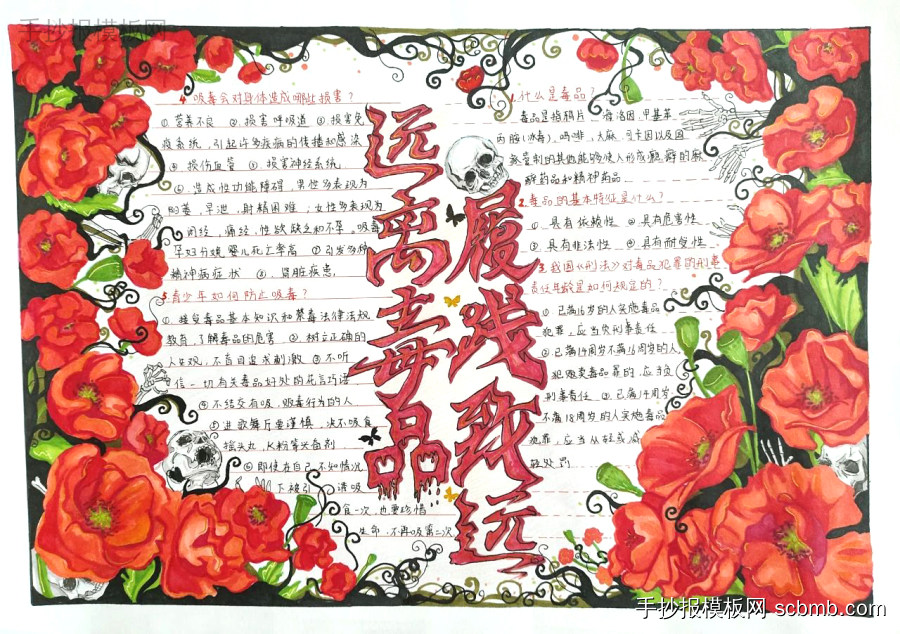 手抄报模板网
远离毒品
履践致远
1.什么是毒品?
毒品是指鸦片、海洛因、甲基苯
丙胺(冰毒)、吗啡、大麻、可卡因以及国
家管制的其他能够使人形成瘾癖的麻
醉药品和精神药品
2.毒品的基本特征是什么?
①具有依赖性 ②具有危害性
③具有非法性 ④具有耐受性
3.我国《刑法》对毒品犯罪的刑事
责任年龄是如何规定的?
①已满16岁的人实施毒品
犯罪,应当负刑事责任
②已满14周岁不满16周岁的人,
犯贩卖毒品罪的,应当负
刑事责任 ③已满14周岁
不满18周岁的人实施毒品
犯罪,应当从轻或减
轻处罚
4.吸毒会对身体造成哪些损害?
①营养不良 ②损害呼吸道 ③损害免
疫系统,引起许多疾病的传播和感染
④损伤血管 ⑤损害神经系统
⑥造成性功能障碍,男性多表现为
阳萎,早泄,射精困难;女性多表现为
闭经,痛经,性欲缺乏和不孕。吸毒
孕妇分娩婴儿死亡率高 ⑦引发多种
精神病症状 ⑧肾脏疾患
5.青少年如何防止吸毒?
①接受毒品基本知识和禁毒法律法规
教育,了解毒品的危害 ②树立正确的
人生观,不盲目追求刺激 ③不听
信一切有关毒品好处的花言巧语
④不结交有吸、贩毒行为的人
⑤进歌舞厅要谨慎,决不吸食
摇头丸、K粉等兴奋剂
⑥即使在自己不知情况
下被引 诱吸
食一次,也要珍惜
生命,不再吸第二次
手抄报模板网 scbmb.com